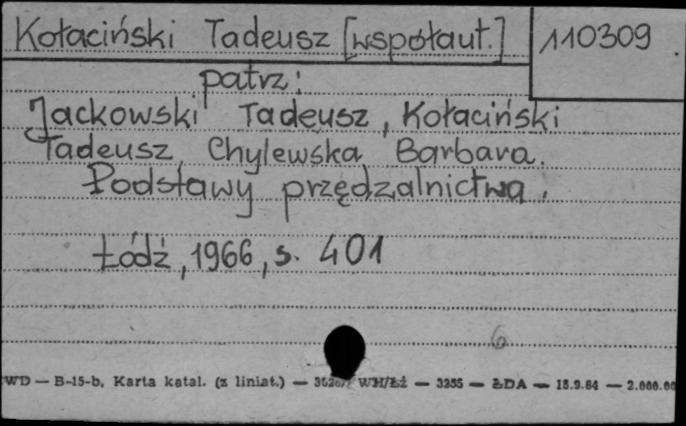 Kołaciński Tadeusz [współaut.]
110309
patrz:
Jackowski Tadeusz, Kołaciński
Tadeusz, Chylewska Barbara.
Podstawy przędzalnictwa.
Łódź, 1966, s. 401
6
WD — B-15-b, Karta katal. (z liniat.) — WH/Łż — 3255 — ŁDA — 18.9.64 — 2.000.00